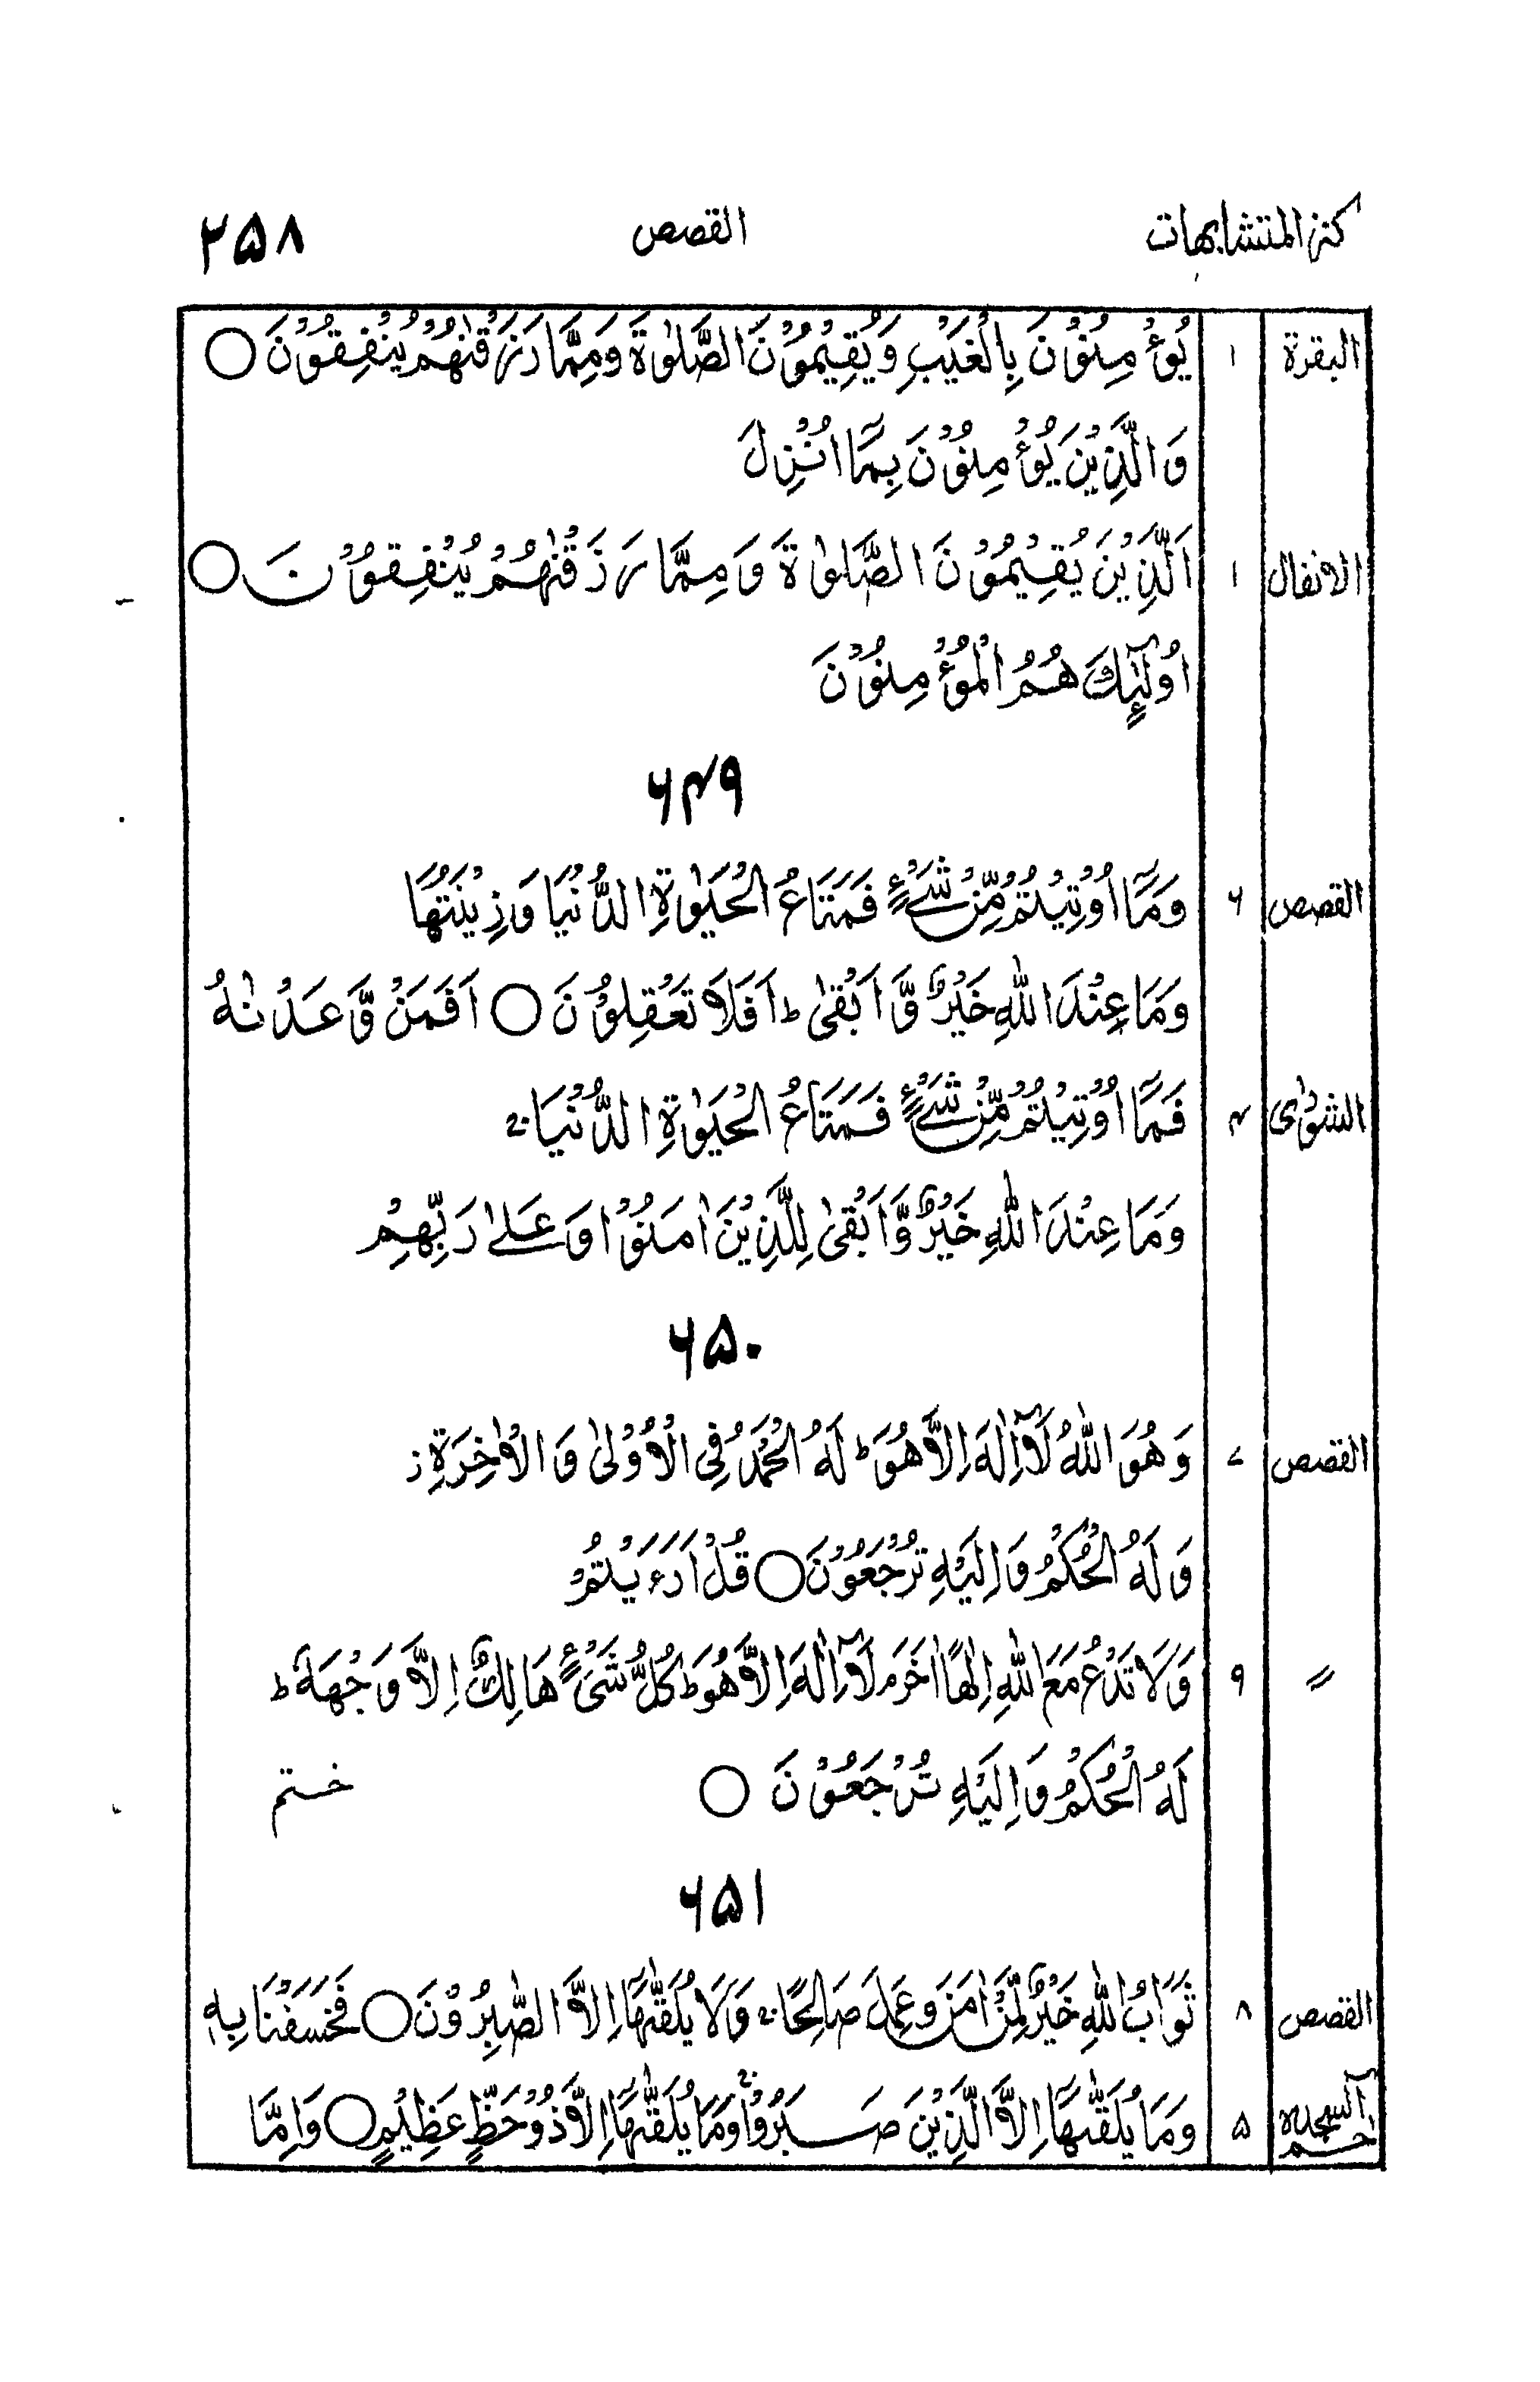 كنز المتشابهات القصص ۲۵۸
البقرة ۱ يُؤْمِنُوْنَ بِالْغَيْبِ وَيُقِيْمُوْنَ الصَّلٰوةَ وَمِمَّا رَزَقْنٰهُمْ يُنْفِقُوْنَ ○
وَالَّذِيْنَ يُؤْمِنُوْنَ بِمَآ اُنْزِلَ
الانفال ۱ اَلَّذِيْنَ يُقِيْمُوْنَ الصَّلٰوةَ وَمِمَّا رَزَقْنٰهُمْ يُنْفِقُوْنَ ○
اُولٰٓئِكَ هُمُ الْمُؤْمِنُوْنَ
۶۴۹
القصص ۶ وَمَآ اُوْتِيْتُمْ مِّنْ شَيْءٍ فَمَتَاعُ الْحَيٰوةِ الدُّنْيَا وَزِيْنَتُهَا
وَمَا عِنْدَ اللّٰهِ خَيْرٌ وَّاَبْقٰى ؕ اَفَلَا تَعْقِلُوْنَ ○ اَفَمَنْ وَّعَدْنٰهُ
الشورٰى ۴ فَمَآ اُوْتِيْتُمْ مِّنْ شَيْءٍ فَمَتَاعُ الْحَيٰوةِ الدُّنْيَا ۚ
وَمَا عِنْدَ اللّٰهِ خَيْرٌ وَّاَبْقٰى لِلَّذِيْنَ اٰمَنُوْا وَعَلٰى رَبِّهِمْ
۶۵۰
القصص ۷ وَهُوَ اللّٰهُ لَآ اِلٰهَ اِلَّا هُوَ ؕ لَهُ الْحَمْدُ فِى الْاُوْلٰى وَالْاٰخِرَةِ ز
وَلَهُ الْحُكْمُ وَاِلَيْهِ تُرْجَعُوْنَ ○ قُلْ اَرَءَيْتُمْ
〃 ۹ وَلَا تَدْعُ مَعَ اللّٰهِ اِلٰهًا اٰخَرَ م لَآ اِلٰهَ اِلَّا هُوَ ؕ كُلُّ شَىْءٍ هَالِكٌ اِلَّا وَجْهَهٗ ؕ
لَهُ الْحُكْمُ وَاِلَيْهِ تُرْجَعُوْنَ ○ ختم
۶۵۱
القصص ۸ ثَوَابُ اللّٰهِ خَيْرٌ لِّمَنْ اٰمَنَ وَعَمِلَ صَالِحًا ۚ وَلَا يُلَقّٰىهَآ اِلَّا الصّٰبِرُوْنَ ○ فَخَسَفْنَا بِهٖ
حٰم السجدة ۵ وَمَا يُلَقّٰىهَآ اِلَّا الَّذِيْنَ صَبَرُوْا ۚ وَمَا يُلَقّٰىهَآ اِلَّا ذُوْ حَظٍّ عَظِيْمٍ ○ وَاِمَّا